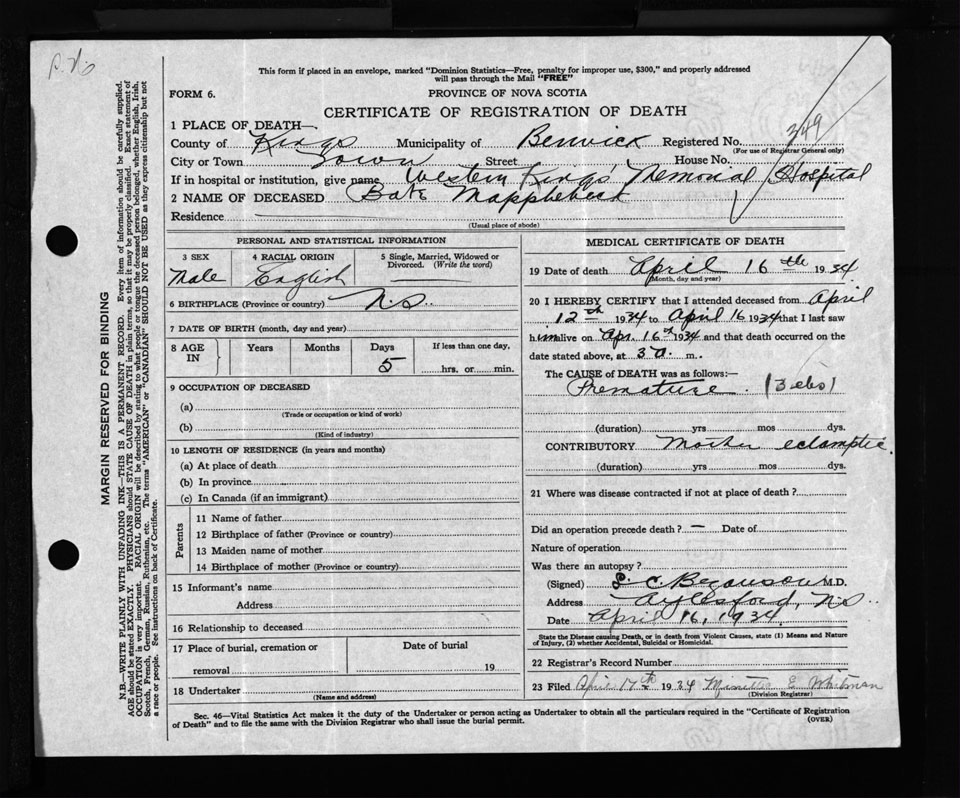 This form if placed in an envelope, marked "Dominion Statistics—Free, penalty for improper use, $300," and properly addressed
will pass through the Mail "FREE"
FORM 6.
PROVINCE OF NOVA SCOTIA
CERTIFICATE OF REGISTRATION OF DEATH
1 PLACE OF DEATH—
County of Kings Municipality of Berwick Registered No. 349
(For use of Registrar General only)
City or Town Town Street House No.
If in hospital or institution, give name Western Kings Memorial Hospital
2 NAME OF DECEASED Mapplebeck
Residence
(Usual place of abode)
PERSONAL AND STATISTICAL INFORMATION
3 SEX 4 RACIAL ORIGIN 5 Single, Married, Widowed or
Divorced. (Write the word)
Male English
6 BIRTHPLACE (Province or country) N.S.
7 DATE OF BIRTH (month, day and year)
8 AGE IN Years Months Days If less than one day,
5 hrs. or min.
9 OCCUPATION OF DECEASED
(a)
(Trade or occupation or kind of work)
(b)
(Kind of industry)
10 LENGTH OF RESIDENCE (in years and months)
(a) At place of death
(b) In province
(c) In Canada (if an immigrant)
Parents
11 Name of father
12 Birthplace of father (Province or country)
13 Maiden name of mother
14 Birthplace of mother (Province or country)
15 Informant's name
Address
16 Relationship to deceased
17 Place of burial, cremation or Date of burial
removal 19
18 Undertaker
(Name and address)
MEDICAL CERTIFICATE OF DEATH
19 Date of death April 16th 1934
(Month, day and year)
20 I HEREBY CERTIFY that I attended deceased from April
12th 1934 to April 16 1934 that I last saw
him alive on Apr. 16th 1934 and that death occurred on the
date stated above, at 3 a. m.
The CAUSE of DEATH was as follows:—
Premature (3 lbs)
(duration) yrs mos dys.
CONTRIBUTORY Mother eclamptic.
(duration) yrs mos dys.
21 Where was disease contracted if not at place of death?
Did an operation precede death? — Date of
Nature of operation
Was there an autopsy?
(Signed) C. M.D.
Address Aylesford, N.S.
Date April 16, 1934
State the Disease causing Death, or in death from Violent Causes, state (1) Means and Nature
of Injury, (2) whether Accidental, Suicidal or Homicidal.
22 Registrar's Record Number
23 Filed April 17th 1934 E. Whitman
(Division Registrar)
Sec. 46—Vital Statistics Act makes it the duty of the Undertaker or person acting as Undertaker to obtain all the particulars required in the "Certificate of Registration
of Death" and to file the same with the Division Registrar who shall issue the burial permit.
(OVER)
MARGIN RESERVED FOR BINDING
N.B.—WRITE PLAINLY WITH UNFADING INK—THIS IS A PERMANENT RECORD. Every item of information should be carefully supplied.
AGE should be stated EXACTLY. PHYSICIANS should STATE CAUSE OF DEATH in plain terms, so that it may be properly classified. Exact statement of
OCCUPATION is very important. RACIAL ORIGIN will be described by stating to what people or tongue the deceased person belonged, whether English, Irish,
Scotch, French, German, Russian, Ruthenian, etc. The terms "AMERICAN" or "CANADIAN" SHOULD NOT BE USED as they express citizenship but not
a race or people. See instructions on back of Certificate.